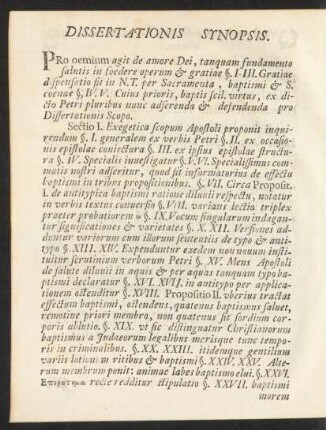 DISSERTATIONIS SYNOPSIS.
PRo oemium agit de amore Dei, tanquam fundamento
salutis in foedere operum & gratiae §. I-III. Gratiae
dispensatio sit in N.T. per Sacramenta, baptismi & S.
coenae §. IV. V. Cuius prioris, baptis scil. virtus, ex di-
cto Petri pluribus nunc adserenda & defendenda pro
Dissertationis Scopo.
Sectio I. Exegetica scopum Apostoli proponit inqui-
rendum §. I. generalem ex verbis Petri §. II. ex occasio-
nis epistolae coniectura §. III. ex ipsius epistolae structu-
ra §. IV. Specialis inuestigatur §. V. VI. Specialissimus com-
matis nostri adseritur, quod sit informatorius de effectu
baptismi in tribus propositionibus. §. VII. Circa Proposit.
I. de antitypica baptismi ratione diluuii respectu, notatur
in verbis textus conuersio §. VIII. varians lectio triplex
praeter probatiorem §. IX. Vocum singularum indagan-
tur significationes & varietates §. X. XII. Versiones ad-
dantur variorum cum illorum sententiis de typo & anti-
typo §. XIII. XIV. Expenduntur eaedem nouumque insti-
tuitur scrutinium verborum Petri §. XV. Mens Apostoli
de salute diluuii in aquis & per aquas tanquam typo ba-
ptismi declaratur §. XVI. XVII. in antitypo per applica-
tionem ostenditur §. XVIII. Propositio II. vberius tractat
effectum baptismi, ostendens, quatenus baptismus saluet,
remotione priori membro, non quatenus sit sordium cor-
poris ablutio. §. XIX. vt sic distinguatur Christianorum
baptismus a Judaeorum legalibus merisque tunc tempo-
ris in criminalibus. §. XX. XXIII. itidemque gentilium
variis lotionum ritibus & baptismi §. XXIV. XXV. Alte-
rum membrum ponit: animae labes baptismo elui. §. XXVI.
Επερώτημα recte redditur stipulatio §. XXVII. baptismi
morem